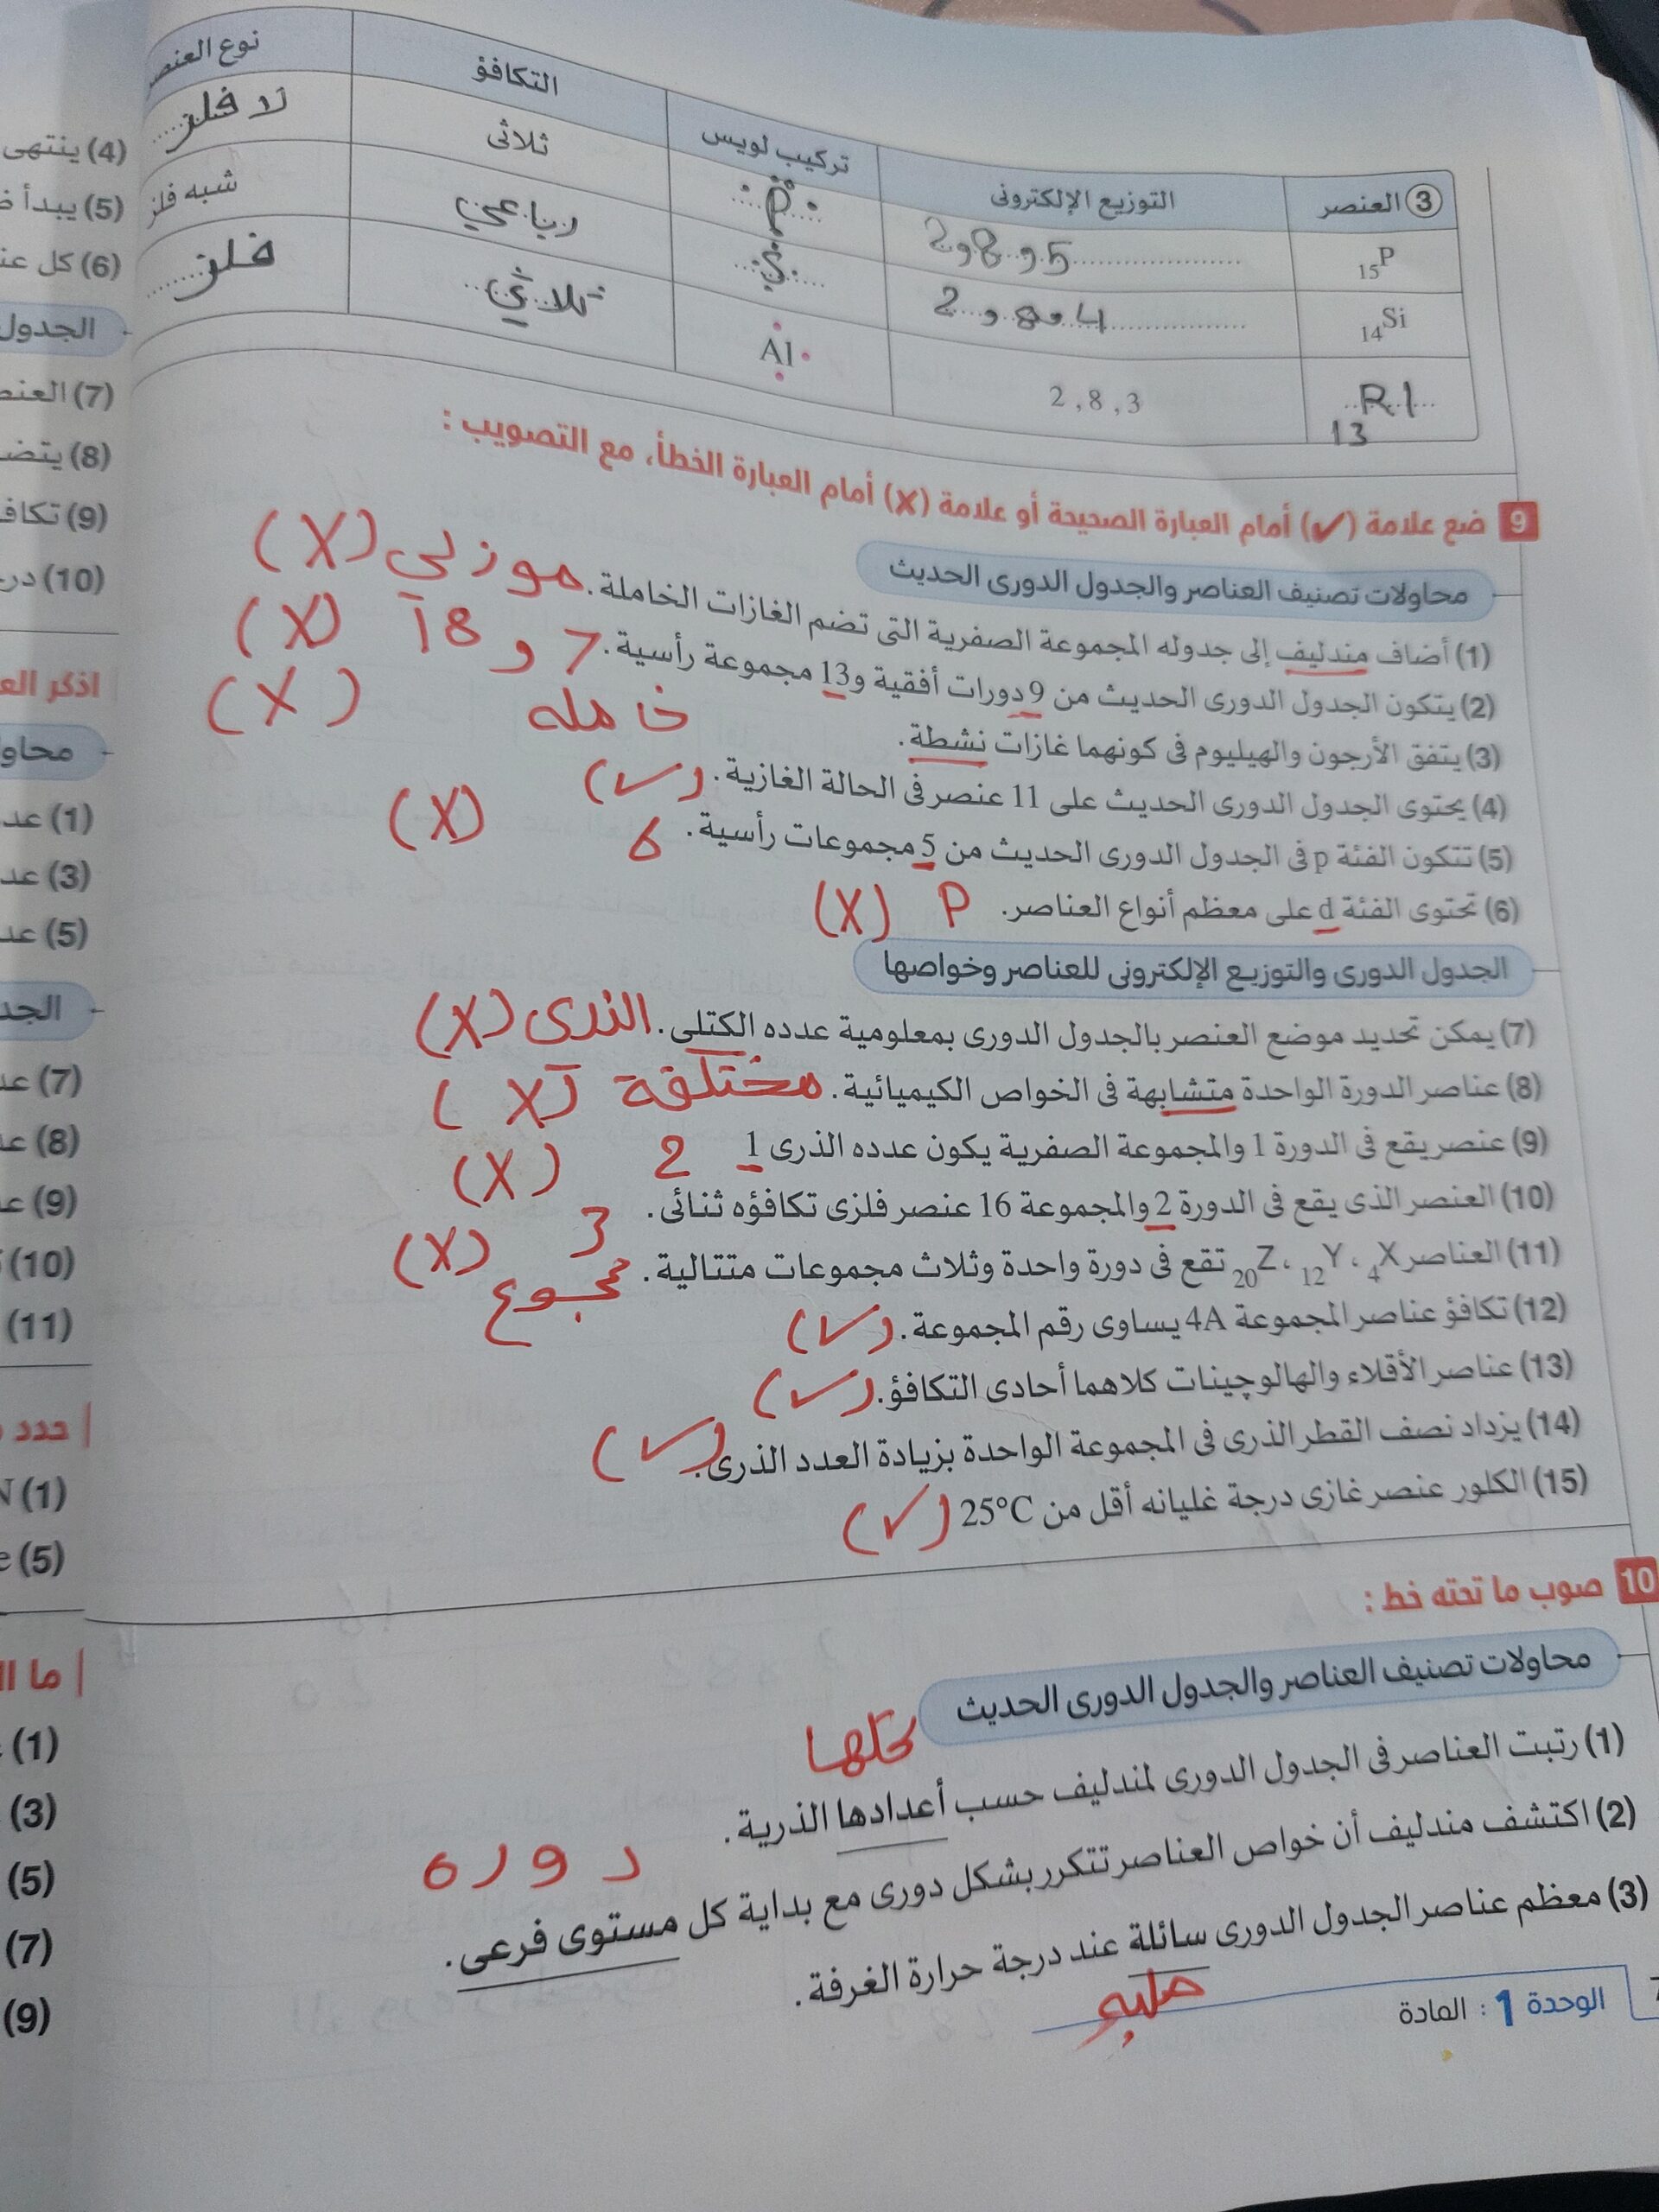 ③ العنصر التوزيع الإلكترونى تركيب لويس التكافؤ نوع العنصر
₁₅P 2,8,5 P ثلاثى لا فلز
₁₄Si 2,8,4 رباعي شبه فلز
13 2 , 8 , 3 Al ثلاثي فلز
9 ضع علامة (✓) أمام العبارة الصحيحة أو علامة (X) أمام العبارة الخطأ، مع التصويب :
محاولات تصنيف العناصر والجدول الدورى الحديث
(1) أضاف مندليف إلى جدوله المجموعة الصفرية التى تضم الغازات الخاملة. موزلي (X)
(2) يتكون الجدول الدورى الحديث من 9 دورات أفقية و13 مجموعة رأسية. 7 و 18 (X)
(3) يتفق الأرجون والهيليوم فى كونهما غازات نشطة. خامله (X)
(4) يحتوى الجدول الدورى الحديث على 11 عنصر فى الحالة الغازية. (✓)
(5) تتكون الفئة p فى الجدول الدورى الحديث من 5 مجموعات رأسية. 6 (X)
(6) تحتوى الفئة d على معظم أنواع العناصر. P (X)
الجدول الدورى والتوزيع الإلكترونى للعناصر وخواصها
(7) يمكن تحديد موضع العنصر بالجدول الدورى بمعلومية عدده الكتلى. الذرى (X)
(8) عناصر الدورة الواحدة متشابهة فى الخواص الكيميائية. مختلفة (X)
(9) عنصر يقع فى الدورة 1 والمجموعة الصفرية يكون عدده الذرى 1 2 (X)
(10) العنصر الذى يقع فى الدورة 2 والمجموعة 16 عنصر فلزى تكافؤه ثنائى. 3
(11) العناصر ₄X ، ₁₂Y ، ₂₀Z تقع فى دورة واحدة وثلاث مجموعات متتالية. (X)
(12) تكافؤ عناصر المجموعة 4A يساوى رقم المجموعة. (✓)
(13) عناصر الأقلاء والهالوچينات كلاهما أحادى التكافؤ. (✓)
(14) يزداد نصف القطر الذرى فى المجموعة الواحدة بزيادة العدد الذرى. (✓)
(15) الكلور عنصر غازى درجة غليانه أقل من 25°C (✓)
10 صوب ما تحته خط :
محاولات تصنيف العناصر والجدول الدورى الحديث
(1) رتبت العناصر فى الجدول الدورى لمندليف حسب أعدادها الذرية.
(2) اكتشف مندليف أن خواص العناصر تتكرر بشكل دورى مع بداية كل مستوى فرعى. دوره
(3) معظم عناصر الجدول الدورى سائلة عند درجة حرارة الغرفة.
الوحدة 1 : المادة
(4) ينتهى
(5) يبدأ
(6) كل
الجدول
(7)
(8)
(9)
(10)
اذكر
(1)
(3)
(5)
(7)
(8)
(9)
(10)
(11)
حدد
(1)
(5)
ما
(1)
(3)
(5)
(7)
(9)